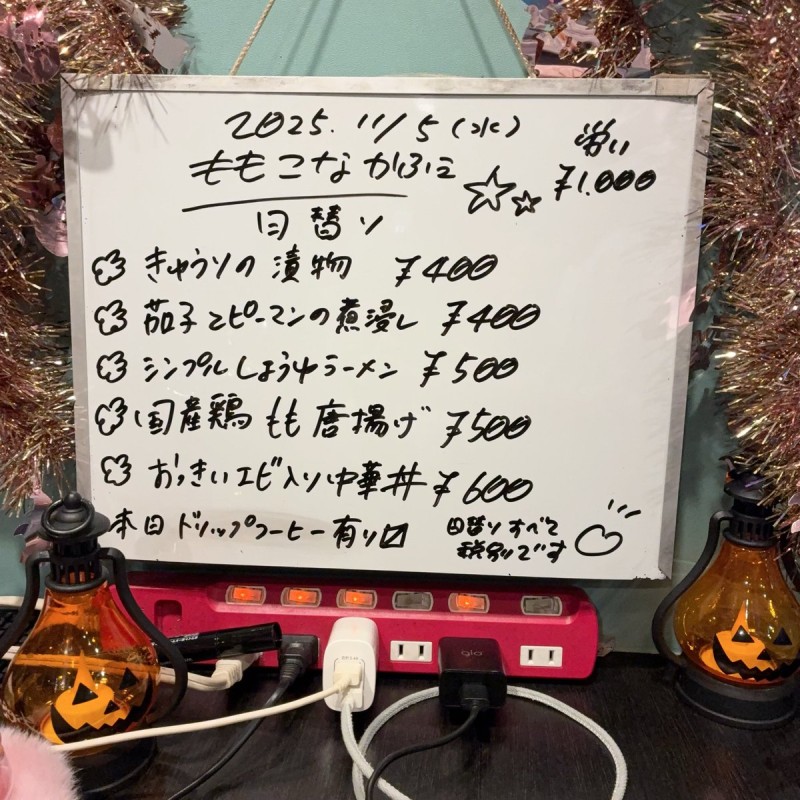 2025. 11/5 (水)
ももこなかふに
¥1.000
日替り
きゅうりの漬物 ¥400
茄子とピーマンの煮浸し ¥400
シンプルしょうゆラーメン ¥500
国産鶏もも唐揚げ ¥500
おっきいエビ入り中華丼 ¥600
本日ドリップコーヒー有り
日替りすべて
税別です
glo